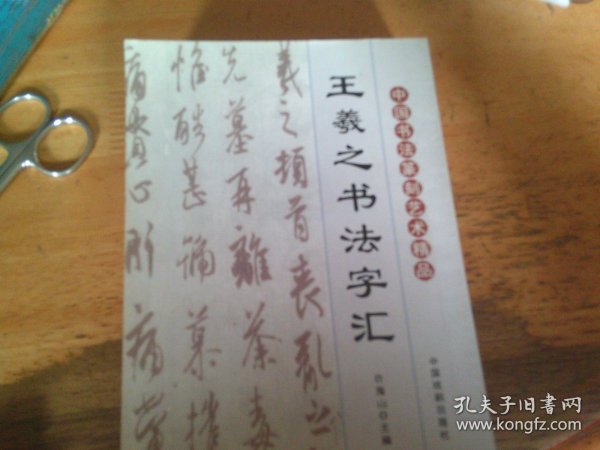 中国书法篆刻艺术精品
王羲之书法字汇
羲之顿首丧乱之
先墓再離荼毒
惟酷甚號慕摧
痛貫心肝痛當
主编
中国戏剧出版社
孔夫子旧书网
www.kongfz.com